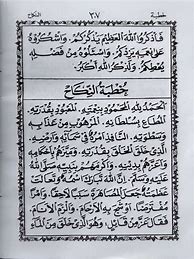 خطبة ٣٧ النكاح
فَاذْكُرُوا اللهَ الْعَظِيْمَ يَذْكُرْكُمْ. وَاشْكُرُوْهُ
عَلَى نِعَمِهِ يَزِدْكُمْ. وَاسْئَلُوْهُ مِنْ فَضْلِهِ
يُعْطِكُمْ. وَلَذِكْرُ اللهِ أَكْبَرُ.
خُطْبَةُ النِّكَاحِ
اَلْحَمْدُ لِلّٰهِ الْمَحْمُوْدِ بِنِعْمَتِهِ. الْمَعْبُوْدِ بِقُدْرَتِهِ.
الْمُطَاعِ بِسُلْطَانِهِ. الْمَرْهُوْبِ مِنْ عَذَابِهِ
وَسَطْوَتِهِ. النَّافِذِ أَمْرُهُ فِيْ سَمَائِهِ وَأَرْضِهِ.
الَّذِيْ خَلَقَ الْخَلْقَ بِقُدْرَتِهِ. وَمَيَّزَهُمْ بِأَحْكَامِهِ.
وَأَعَزَّهُمْ بِدِيْنِهِ. وَأَكْرَمَهُمْ بِنَبِيِّهِ مُحَمَّدٍ صَلَّى
اللهُ عَلَيْهِ وَسَلَّمَ. إِنَّ اللهَ تَبَارَكَ اسْمُهُ وَتَعَالَتْ
عَظَمَتُهُ جَعَلَ الْمُصَاهَرَةَ سَبَبًا لَاحِقًا. وَأَمْرًا
مُفْتَرَضًا. أَوْشَجَ بِهِ الْأَرْحَامَ. وَأَلْزَمَ الْأَنَامَ.
فَقَالَ عَزَّ مَنْ قَائِلٍ. وَهُوَ الَّذِيْ خَلَقَ مِنَ الْمَاءِ